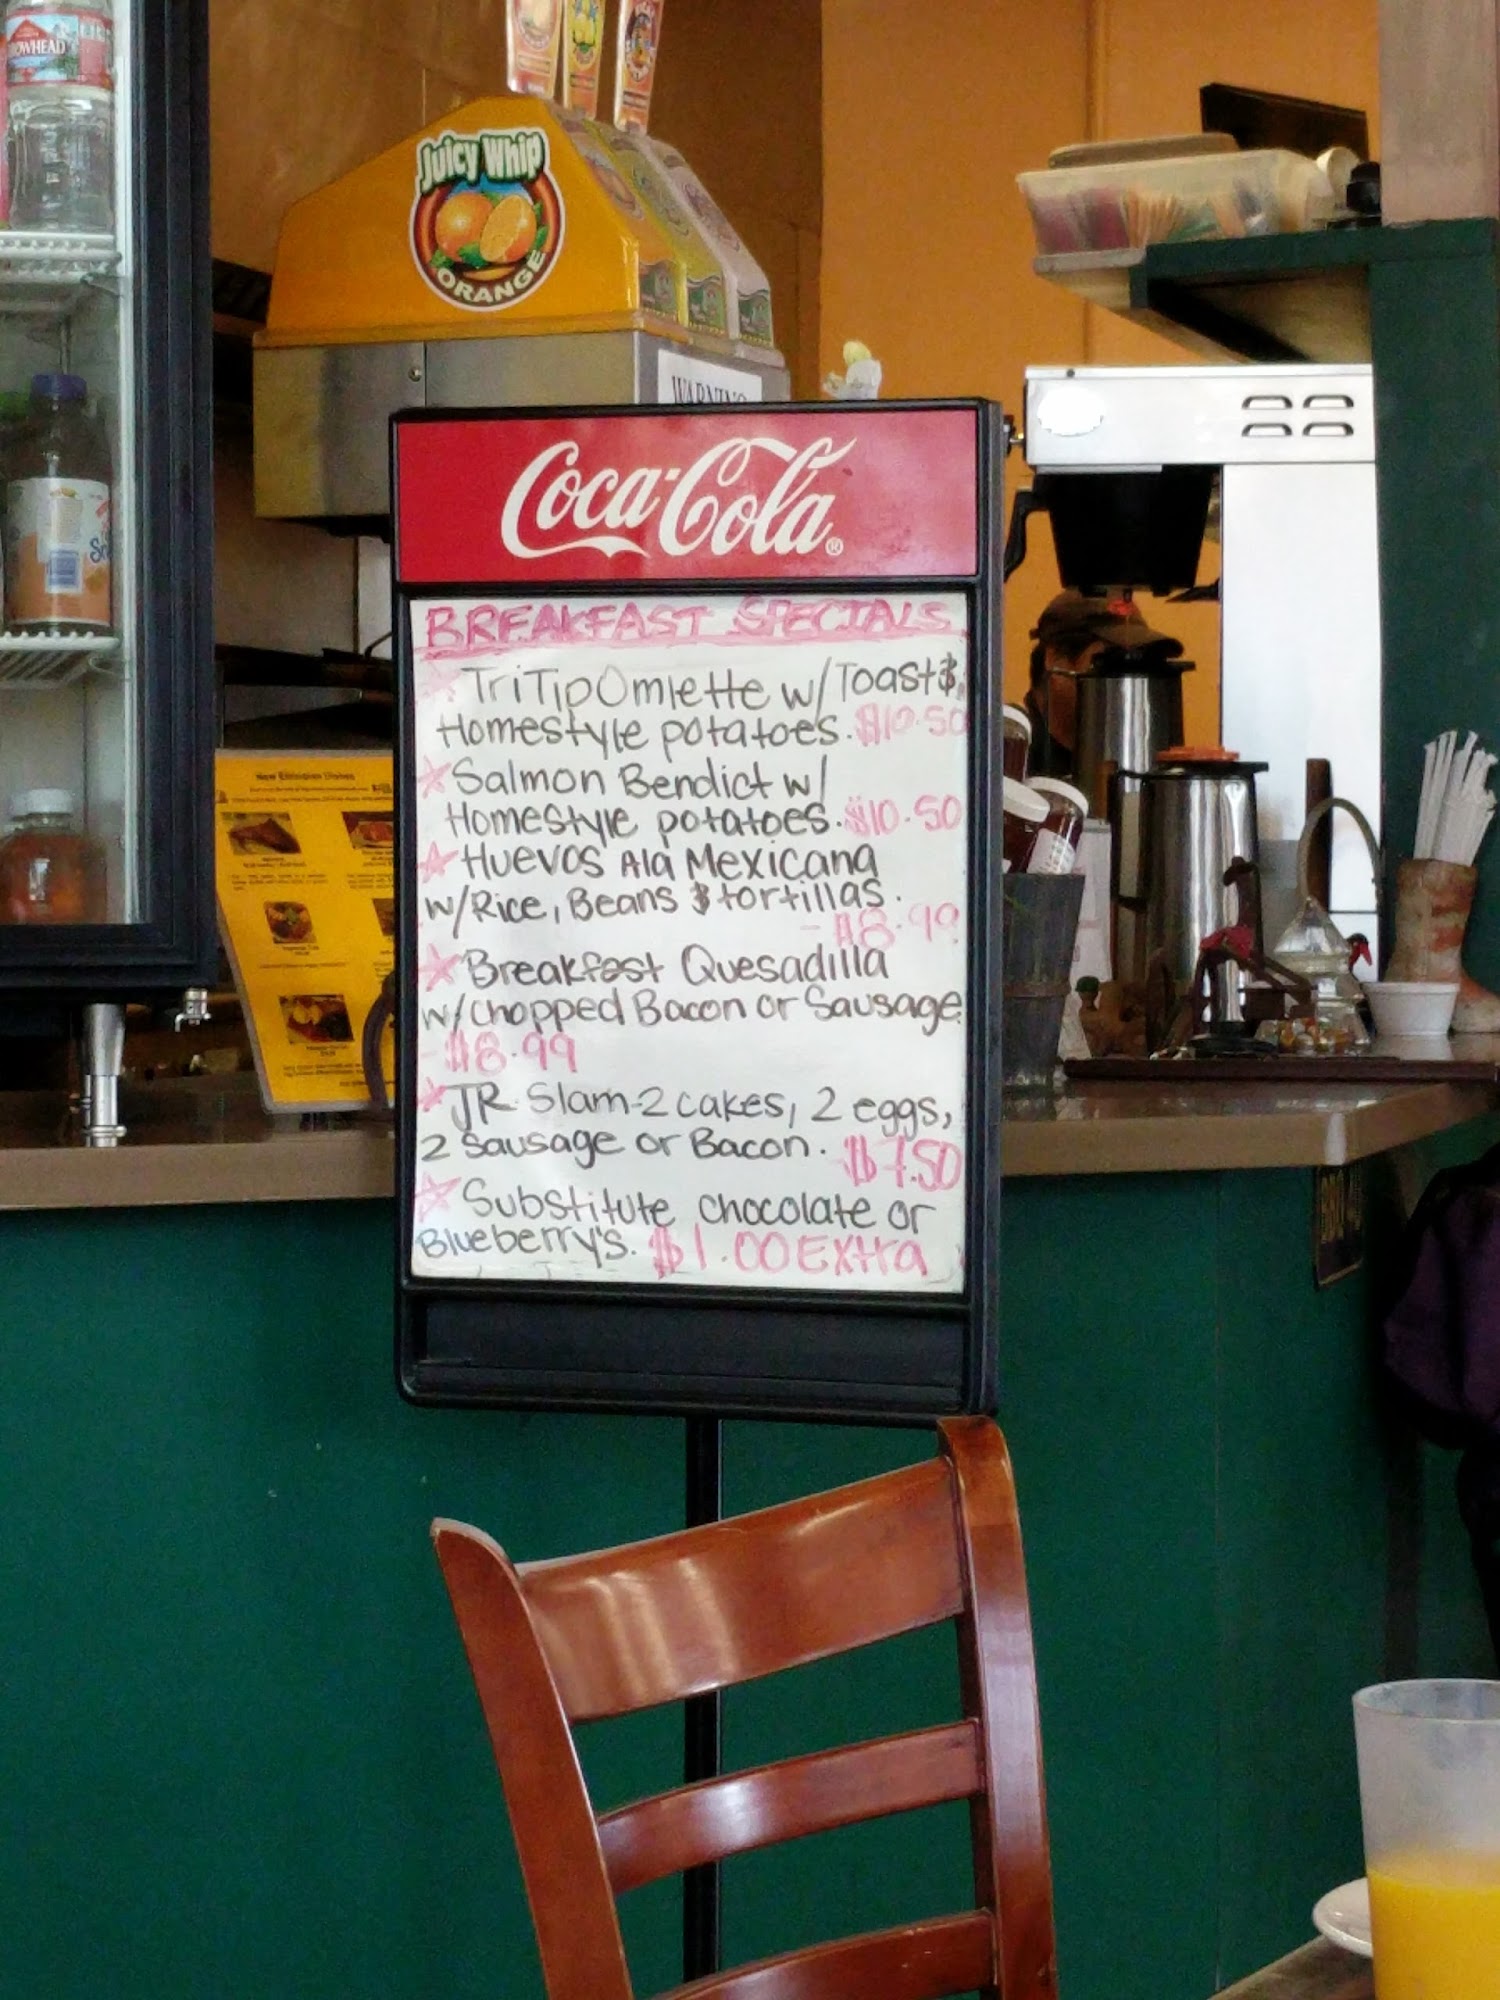 ROWHEAD
Juicy Whip
ORANGE
WARNING
Coca-Cola®
BREAKFAST SPECIALS
TriTip Omlette w/Toast &
Homestyle potatoes. $10.50
Salmon Bendict w/
Homestyle potatoes. $10.50
Huevos Ala Mexicana
w/Rice, Beans & tortillas.
- $8.99
Breakfast Quesadilla
w/chopped Bacon or Sausage
- $8.99
JR. Slam-2 cakes, 2 eggs,
2 Sausage or Bacon. $7.50
Substitute chocolate or
Blueberry's. $1.00 Extra
New Ethiopian Dishes